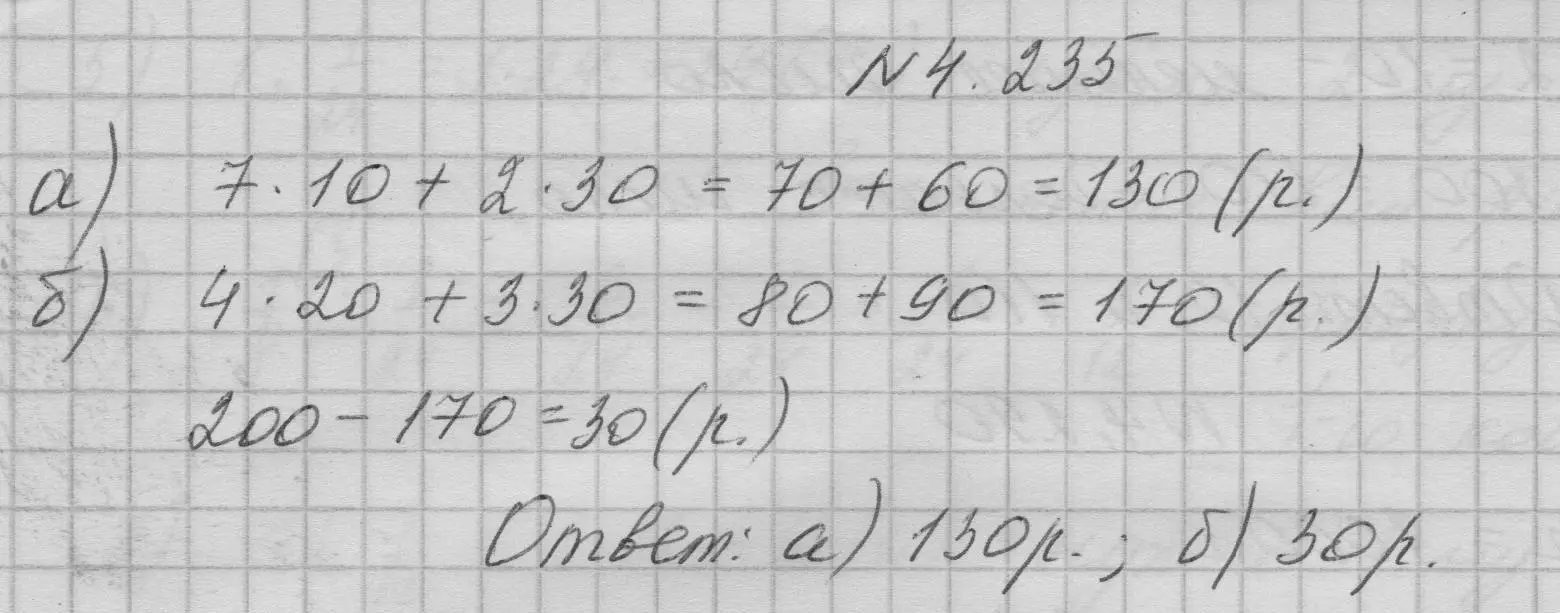 № 4.235
а) 7·10 + 2·30 = 70 + 60 = 130 (р.)
б) 4·20 + 3·30 = 80 + 90 = 170 (р.)
200 - 170 = 30 (р.)
Ответ: а) 130р.; б) 30р.